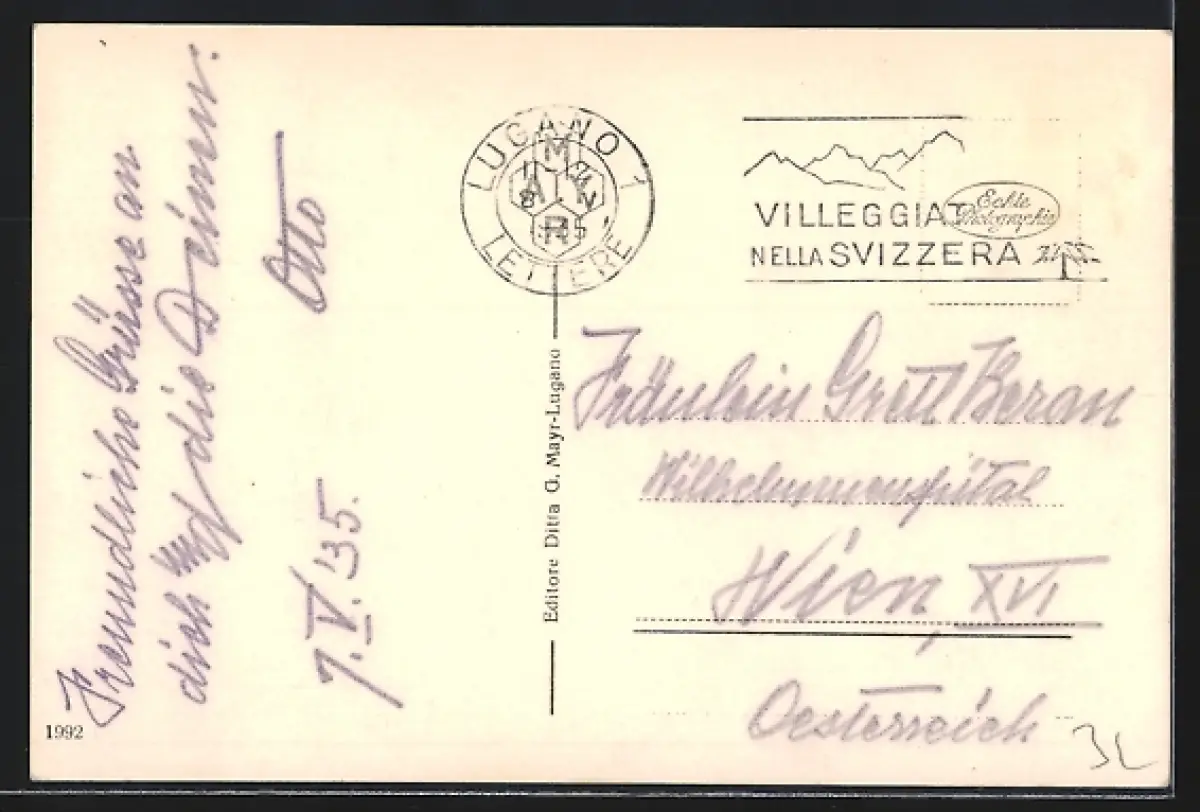 Freundliche Grüsse an
dich und die Deinen.
Otto
7.V.'35.
1992
Editore Ditta G. Mayr-Lugano
LUGANO 1
LETTERE
MAYR
VILLEGGIAT
NELLA SVIZZERA
Echte
Photographie
Fräulein Gretl Beran
Wilhelminenspital
Wien, XVI
Oesterreich
3L